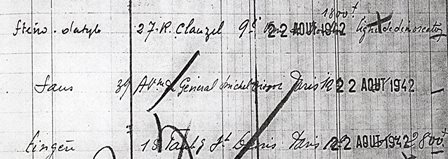 1800f
Sténo. dactylo 27. R. Clauzel 9e 22 AOUT 1942 ligne de démarcation
Sans 39 Av. du Général Michel Bizot Paris 12 22 AOUT 1942
lingère 18 Faubg St Denis Paris 22 AOUT 1942 800f